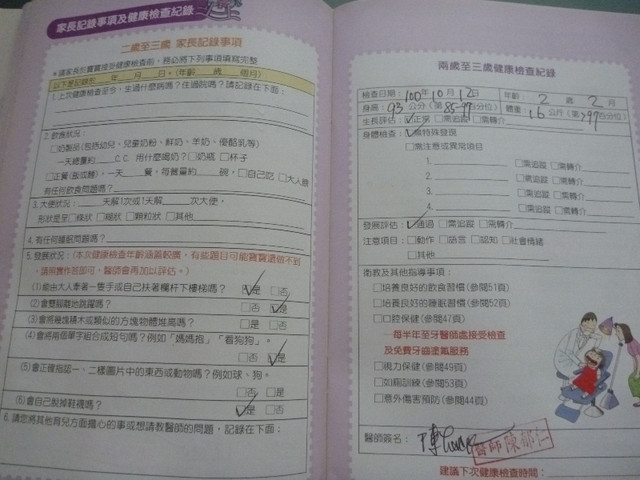 家長記錄事項及健康檢查紀錄
二歲至三歲 家長記錄事項
*請家長於寶寶接受健康檢查前，務必將下列事項填寫完整
以下是記錄於 年 月 日。(年齡 歲 個月)
1.上次健康檢查至今，生過什麼病嗎？住過院嗎？請記錄在下面：
2.飲食狀況：
□奶製品(包括幼兒、兒童奶粉、鮮奶、羊奶、優酪乳等)
一天總量約 C.C. 用什麼喝奶？□奶瓶 □杯子
□正餐(飯或麵)，一天 餐，每餐量約 碗，□自己吃 □大人餵
有任何飲食問題嗎？
3.大便狀況： 天解1次或1天解 次大便，
形狀是否□條狀 □糊狀 □顆粒狀 □其他
4.有任何睡眠問題嗎？
5.發展狀況：(本次健康檢查年齡涵蓋較廣，有些題目可能寶寶還做不到，
請照實作答即可，醫師會再加以評估。)
(1)能由大人牽著一隻手或自己扶著欄杆下樓梯嗎？ □是 □否
(2)會雙腳離地跳躍嗎？ □否 □是
(3)會將幾塊積木或類似的方塊物體堆高嗎？ □是 □否
(4)會將兩個單字組合成短句嗎？例如「媽媽抱」「看狗狗」。
□否 □是
(5)會正確指認一、二樣圖片中的東西或動物嗎？例如球、狗。
□否 □是
(6)會自己脫掉鞋襪嗎？ □是 □否
6.請您將其他育兒方面擔心的事或想請教醫師的問題，記錄在下面：
兩歲至三歲健康檢查紀錄
檢查日期：100年10月12日 年齡 2 歲 2 月
身高：93 公分(第85-97百分位) 體重：16 公斤(第>97百分位)
生長評估：□正常 □需追蹤 □需轉介
身體檢查：□無特殊發現
□需注意或異常項目
1. □需追蹤 □需轉介
2. □需追蹤 □需轉介
3. □需追蹤 □需轉介
4. □需追蹤 □需轉介
發展評估：□通過 □需追蹤 □需轉介
注意項目：□動作 □語言 □認知 □社會情緒
□其他
衛教及其他指導事項：
□培養良好的飲食習慣(參閱51頁)
□培養良好的睡眠習慣(參閱52頁)
□口腔保健(參閱47頁)
—每半年至牙醫師處接受檢查
及免費牙齒塗氟服務
□視力保健(參閱49頁)
□如廁訓練(參閱53頁)
□意外傷害預防(參閱44頁)
醫師簽名：
醫師陳郁仁
建議下次健康檢查時間：